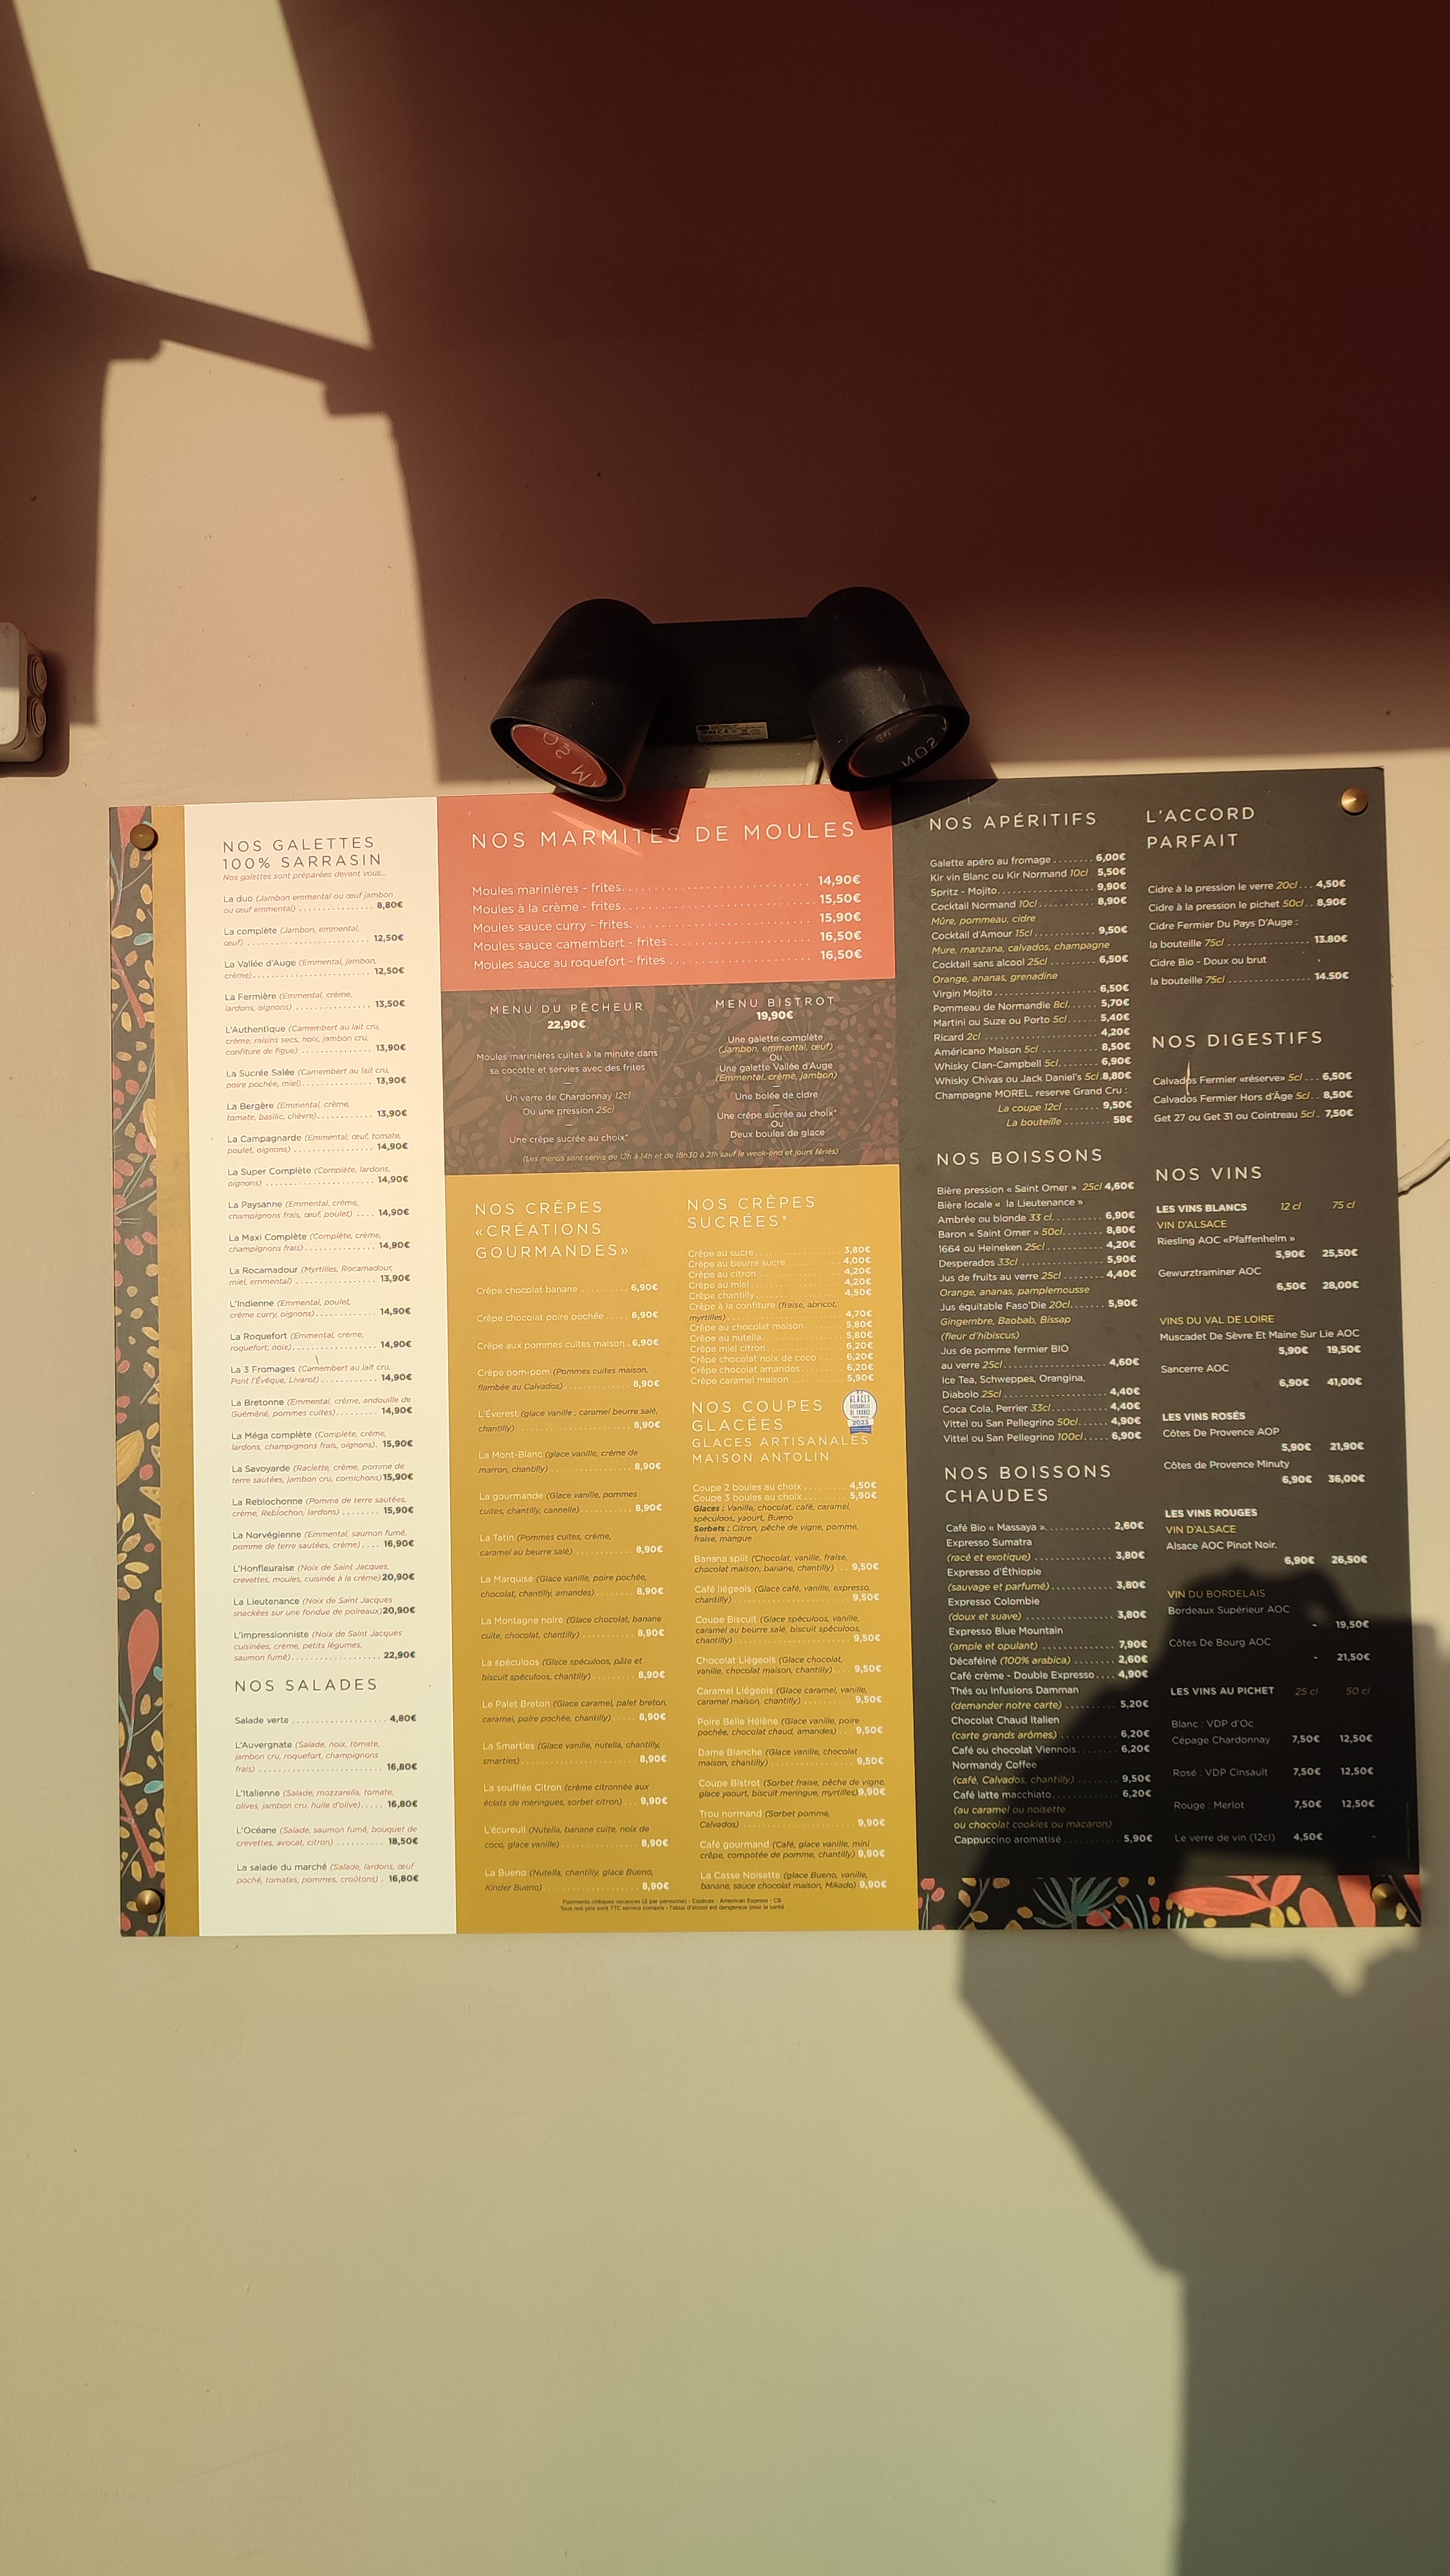 NOS GALETTES
100% SARRASIN
Nos galettes sont préparées devant vous...
La duo (Jambon emmental ou œuf jambon
ou œuf emmental) .................. 8,80€
La complète (Jambon, emmental,
œuf) .................. 12,50€
La Vallée d'Auge (Emmental, jambon,
crème).................. 12,50€
La Fermière (Emmental, crème,
lardons, oignons) .................. 13,50€
L'Authentique (Camembert au lait cru,
crème, raisins secs, noix, jambon cru,
confiture de figue) .................. 13,90€
La Sucrée Salée (Camembert au lait cru,
poire pochée, miel).................. 13,90€
La Bergère (Emmental, crème,
tomate, basilic, chèvre).................. 13,90€
La Campagnarde (Emmental, œuf, tomate,
poulet, oignons) .................. 14,90€
La Super Complète (Complète, lardons,
oignons) .................. 14,90€
La Paysanne (Emmental, crème,
champignons frais, œuf, poulet) .... 14,90€
La Maxi Complète (Complète, crème,
champignons frais) .................. 14,90€
La Rocamadour (Myrtilles, Rocamadour,
miel, emmental) .................. 13,90€
L'Indienne (Emmental, poulet,
crème curry, oignons).................. 14,90€
La Roquefort (Emmental, crème,
roquefort, noix).................. 14,90€
La 3 Fromages (Camembert au lait cru,
Pont l'Évêque, Livarot) .................. 14,90€
La Bretonne (Emmental, crème, andouille de
Guéméné, pommes cuites)......... 14,90€
La Méga complète (Complète, crème,
lardons, champignons frais, oignons). 15,90€
La Savoyarde (Raclette, crème, pomme de
terre sautées, jambon cru, cornichons)15,90€
La Reblochonne (Pomme de terre sautées,
crème, Reblochon, lardons) ........ 15,90€
La Norvégienne (Emmental, saumon fumé,
pomme de terre sautées, crème) .... 16,90€
L'Honfleuraise (Noix de Saint Jacques,
crevettes, moules, cuisinée à la crème)20,90€
La Lieutenance (Noix de Saint Jacques
snackées sur une fondue de poireaux)20,90€
L'impressionniste (Noix de Saint Jacques
cuisinées, crème, petits légumes,
saumon fumé).................. 22,90€
NOS SALADES
Salade verte .................. 4,80€
L'Auvergnate (Salade, noix, tomate,
jambon cru, roquefort, champignons
frais) .................. 16,80€
L'Italienne (Salade, mozzarella, tomate,
olives, jambon cru, huile d'olive)..... 16,80€
L'Océane (Salade, saumon fumé, bouquet de
crevettes, avocat, citron) .......... 18,50€
La salade du marché (Salade, lardons, œuf
poché, tomates, pommes, croûtons) . 16,80€
NOS MARMITES DE MOULES
Moules marinières - frites.................. 14,90€
Moules à la crème - frites.................. 15,50€
Moules sauce curry - frites.................. 15,90€
Moules sauce camembert - frites.................. 16,50€
Moules sauce au roquefort - frites .................. 16,50€
MENU DU PÊCHEUR
22,90€
Moules marinières cuites à la minute dans
sa cocotte et servies avec des frites
—
Un verre de Chardonnay 12cl
Ou une pression 25cl
—
Une crêpe sucrée au choix*
MENU BISTROT
19,90€
Une galette complète
(Jambon, emmental, œuf)
Ou
Une galette Vallée d'Auge
(Emmental, crème, jambon)
—
Une bolée de cidre
—
Une crêpe sucrée au choix*
Ou
Deux boules de glace
(Les menus sont servis de 12h à 14h et de 18h30 à 21h sauf le week-end et jours fériés)
NOS CRÊPES
«CRÉATIONS
GOURMANDES»
Crêpe chocolat banane .......... 6,90€
Crêpe chocolat poire pochée ..... 6,90€
Crêpe aux pommes cuites maison . 6,90€
Crêpe pom-pom (Pommes cuites maison,
flambée au Calvados) ............... 8,90€
L'Éverest (glace vanille , caramel beurre salé,
chantilly) .................. 8,90€
La Mont-Blanc (glace vanille, crème de
marron, chantilly) .................. 8,90€
La gourmande (Glace vanille, pommes
cuites, chantilly, cannelle) .......... 8,90€
La Tatin (Pommes cuites, crème,
caramel au beurre salé) ............. 8,90€
La Marquise (Glace vanille, poire pochée,
chocolat, chantilly, amandes) ....... 8,90€
La Montagne noire (Glace chocolat, banane
cuite, chocolat, chantilly) ........... 8,90€
La spéculoos (Glace spéculoos, pâte et
biscuit spéculoos, chantilly) ........ 8,90€
Le Palet Breton (Glace caramel, palet breton,
caramel, poire pochée, chantilly) .... 8,90€
La Smarties (Glace vanille, nutella, chantilly,
smarties) .................. 8,90€
La soufflée Citron (crème citronnée aux
éclats de meringues, sorbet citron) ... 9,90€
L'écureuil (Nutella, banane cuite, noix de
coco, glace vanille) .................. 8,90€
La Bueno (Nutella, chantilly, glace Bueno,
Kinder Bueno) .................. 8,90€
NOS CRÊPES
SUCRÉES*
Crêpe au sucre .................. 3,80€
Crêpe au beurre sucre .................. 4,00€
Crêpe au citron .................. 4,20€
Crêpe au miel .................. 4,20€
Crêpe chantilly .................. 4,50€
Crêpe à la confiture (fraise, abricot,
myrtilles) .................. 4,70€
Crêpe au chocolat maison ........ 5,80€
Crêpe au nutella .................. 5,80€
Crêpe miel citron .................. 6,20€
Crêpe chocolat noix de coco ...... 6,20€
Crêpe chocolat amandes ......... 6,20€
Crêpe caramel maison ........... 5,90€
NOS COUPES
GLACÉES
GLACES ARTISANALES
MAISON ANTOLIN
2023
Coupe 2 boules au choix .......... 4,50€
Coupe 3 boules au choix .......... 5,90€
Glaces : Vanille, chocolat, café, caramel,
spéculoos, yaourt, Bueno
Sorbets : Citron, pêche de vigne, pomme,
fraise, mangue
Banana split (Chocolat, vanille, fraise,
chocolat maison, banane, chantilly) ... 9,50€
Café liégeois (Glace café, vanille, expresso,
chantilly) .................. 9,50€
Coupe Biscuit (Glace spéculoos, vanille,
caramel au beurre salé, biscuit spéculoos,
chantilly) .................. 9,50€
Chocolat Liégeois (Glace chocolat,
vanille, chocolat maison, chantilly) .... 9,50€
Caramel Liégeois (Glace caramel, vanille,
caramel maison, chantilly) .......... 9,50€
Poire Belle Hélène (Glace vanille, poire
pochée, chocolat chaud, amandes) ... 9,50€
Dame Blanche (Glace vanille, chocolat
maison, chantilly) .................. 9,50€
Coupe Bistrot (Sorbet fraise, pêche de vigne,
glace yaourt, biscuit meringue, myrtilles)9,90€
Trou normand (Sorbet pomme,
Calvados) .................. 9,90€
Café gourmand (Café, glace vanille, mini
crêpe, compotée de pomme, chantilly) 9,90€
La Casse Noisette (glace Bueno, vanille,
banane, sauce chocolat maison, Mikado) 9,90€
Paiements chèques vacances (2 par personne) - Espèces - American Express - CB
Tous nos prix sont TTC service compris - l'abus d'alcool est dangereux pour la santé
NOS APÉRITIFS
Galette apéro au fromage ........ 6,00€
Kir vin Blanc ou Kir Normand 10cl 5,50€
Spritz - Mojito.................. 9,90€
Cocktail Normand 10cl ........... 8,90€
Mûre, pommeau, cidre
Cocktail d'Amour 15cl............ 9,50€
Mure, manzana, calvados, champagne
Cocktail sans alcool 25cl ......... 6,50€
Orange, ananas, grenadine
Virgin Mojito .................. 6,50€
Pommeau de Normandie 8cl...... 5,70€
Martini ou Suze ou Porto 5cl...... 5,40€
Ricard 2cl .................. 4,20€
Américano Maison 5cl ........... 8,50€
Whisky Clan-Campbell 5cl........ 6,90€
Whisky Chivas ou Jack Daniel's 5cl.8,80€
Champagne MOREL, reserve Grand Cru :
La coupe 12cl ........ 9,50€
La bouteille ......... 58€
NOS BOISSONS
Bière pression « Saint Omer » 25cl 4,60€
Bière locale « la Lieutenance »
Ambrée ou blonde 33 cl.......... 6,90€
Baron « Saint Omer » 50cl........ 8,80€
1664 ou Heineken 25cl ........... 4,20€
Desperados 33cl .................. 5,90€
Jus de fruits au verre 25cl ........ 4,40€
Orange, ananas, pamplemousse
Jus équitable Faso'Die 20cl....... 5,90€
Gingembre, Baobab, Bissap
(fleur d'hibiscus)
Jus de pomme fermier BIO
au verre 25cl.................. 4,60€
Ice Tea, Schweppes, Orangina,
Diabolo 25cl .................. 4,40€
Coca Cola, Perrier 33cl........... 4,40€
Vittel ou San Pellegrino 50cl...... 4,90€
Vittel ou San Pellegrino 100cl..... 6,90€
NOS BOISSONS
CHAUDES
Café Bio « Massaya »............ 2,60€
Expresso Sumatra
(racé et exotique) ............... 3,80€
Expresso d'Éthiopie
(sauvage et parfumé)............ 3,80€
Expresso Colombie
(doux et suave) ................. 3,80€
Expresso Blue Mountain
(ample et opulant) .............. 7,90€
Décaféiné (100% arabica) ........ 2,60€
Café crème - Double Expresso.... 4,90€
Thés ou Infusions Damman
(demander notre carte) .......... 5,20€
Chocolat Chaud Italien
(carte grands arômes) ........... 6,20€
Café ou chocolat Viennois........ 6,20€
Normandy Coffee
(café, Calvados, chantilly) ........ 9,50€
Café latte macchiato............. 6,20€
(au caramel ou noisette
ou chocolat cookies ou macaron)
Cappuccino aromatisé ........... 5,90€
L'ACCORD
PARFAIT
Cidre à la pression le verre 20cl ... 4,50€
Cidre à la pression le pichet 50cl .. 8,90€
Cidre Fermier Du Pays D'Auge :
la bouteille 75cl ............... 13.80€
Cidre Bio - Doux ou brut
la bouteille 75cl ............... 14.50€
NOS DIGESTIFS
Calvados Fermier «réserve» 5cl ... 6,50€
Calvados Fermier Hors d'Âge 5cl .. 8,50€
Get 27 ou Get 31 ou Cointreau 5cl . 7,50€
NOS VINS
LES VINS BLANCS 12 cl 75 cl
VIN D'ALSACE
Riesling AOC «Pfaffenhelm »
5,90€ 25,50€
Gewurztraminer AOC
6,50€ 28,00€
VINS DU VAL DE LOIRE
Muscadet De Sèvre Et Maine Sur Lie AOC
5,90€ 19,50€
Sancerre AOC
6,90€ 41,00€
LES VINS ROSÉS
Côtes De Provence AOP
5,90€ 21,90€
Côtes de Provence Minuty
6,90€ 36,00€
LES VINS ROUGES
VIN D'ALSACE
Alsace AOC Pinot Noir.
6,90€ 26,50€
VIN DU BORDELAIS
Bordeaux Supérieur AOC
- 19,50€
Côtes De Bourg AOC
- 21,50€
LES VINS AU PICHET 25 cl 50 cl
Blanc : VDP d'Oc
Cépage Chardonnay 7,50€ 12,50€
Rosé : VDP Cinsault 7,50€ 12,50€
Rouge : Merlot 7,50€ 12,50€
Le verre de vin (12cl) 4,50€ -